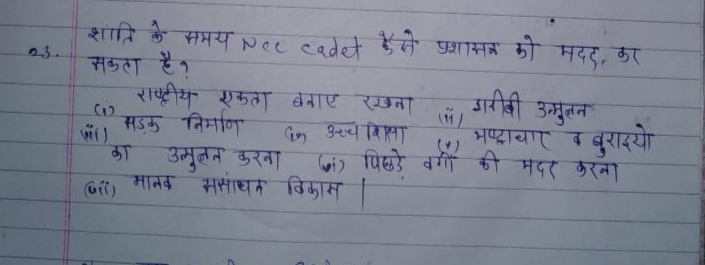 23. शांति के समय Ncc cadet कैसे प्रशासन को मदद, कर
सकता है?
(i) राष्ट्रीय एकता बनाए रखना (ii) गरीबी उन्मुलन
(iii) सड़क निर्माण (iv) उच्च शिक्षा (v) भष्टाचार व बुराइयो
का उन्मुलन करना (vi) पिछड़े वर्गो की मदद करना
(vii) मानव संसाधन विकास |